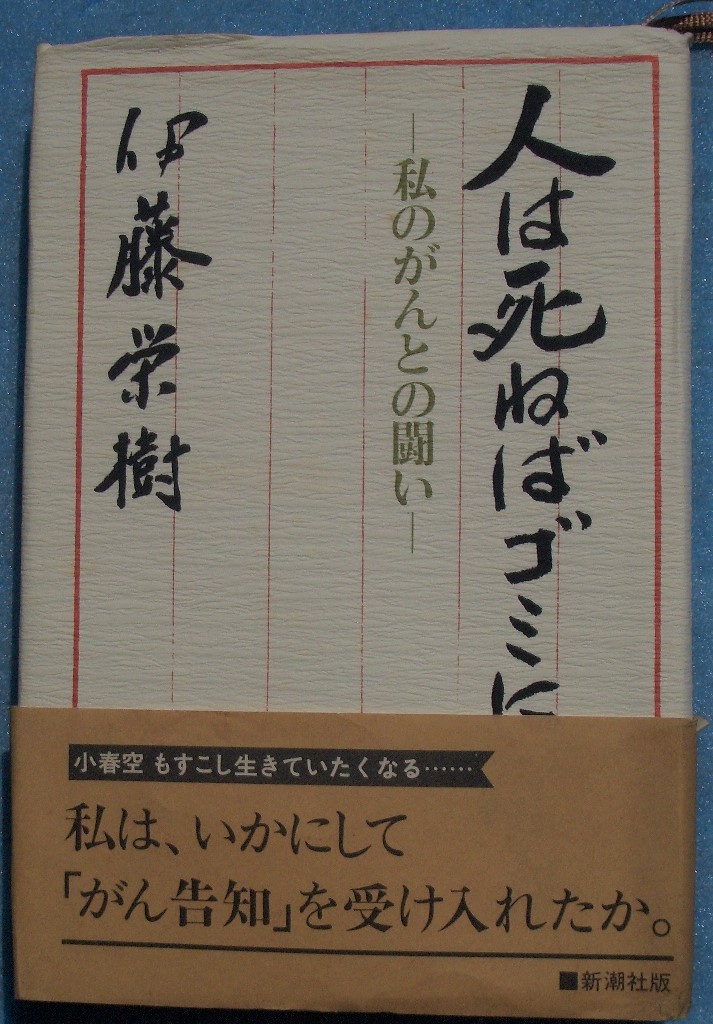 人は死ねばゴミに
―私のがんとの闘い―
伊藤栄樹
小春空 もすこし生きていたくなる……
私は、いかにして
「がん告知」を受け入れたか。
■新潮社版